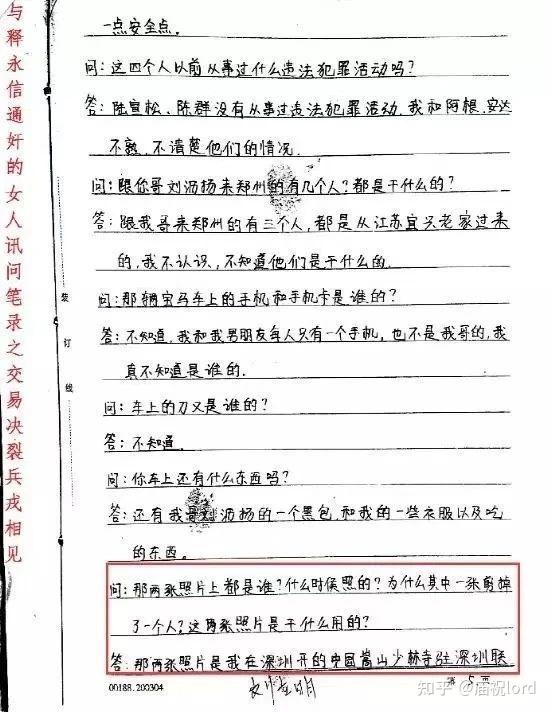 与释永信通奸的女人讯问笔录之交易决裂兵戎相见
装订线
一点安全点。
问：这四个人以前从事过什么违法犯罪活动吗？
答：陆宜松、陈群没有从事过违法犯罪活动．我和阿根、安达
不熟．不清楚他们的情况．
问：跟你哥刘沥扬来郑州的有几个人？都是干什么的？
答：跟我哥来郑州的有三个人，都是从江苏宜兴老家过来
的，我不认识，不知道他们是干什么的．
问：那辆宝马车上的手机和手机卡是谁的？
答：不知道．我和我男朋友每人只有一个手机，也不是我哥的，我
真不知道是谁的．
问：车上的刀又是谁的？
答：不知道．
问：你车上还有什么东西吗？
答：还有我哥刘沥扬的一个黑包．和我的一些衣服以及吃
的东西．
问：那两张照片上都是谁？什么时候照的？为什么其中一张剪掉
了一个人？这两张照片是干什么用的？
答：那两张照片是我在深圳开的中国嵩山少林寺驻深圳联
00188.200304
第 5 页
知乎 @庙祝lord